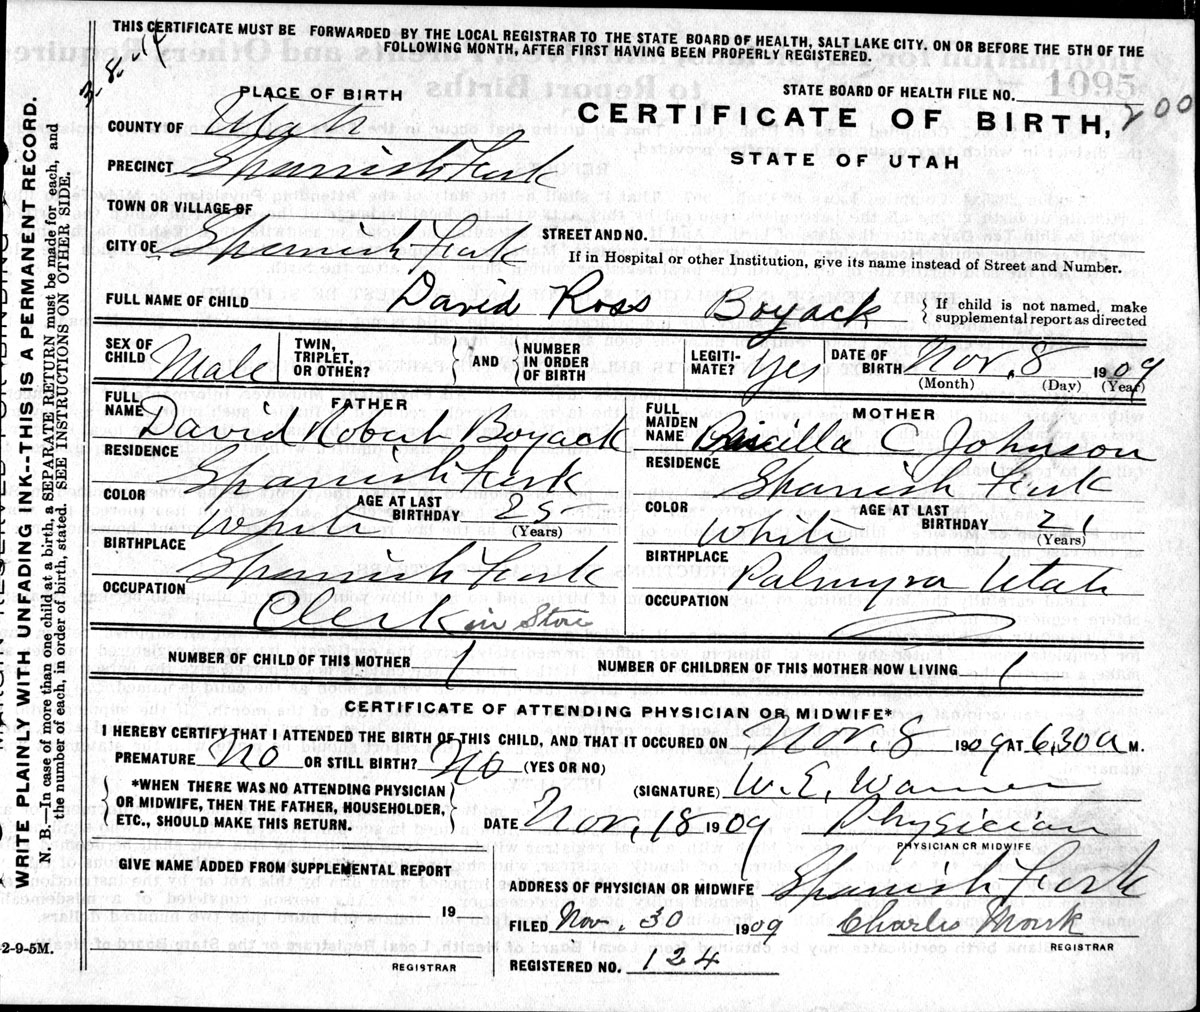 THIS CERTIFICATE MUST BE FORWARDED BY THE LOCAL REGISTRAR TO THE STATE BOARD OF HEALTH, SALT LAKE CITY, ON OR BEFORE THE 5TH OF THE
FOLLOWING MONTH, AFTER FIRST HAVING BEEN PROPERLY REGISTERED.
PLACE OF BIRTH
STATE BOARD OF HEALTH FILE NO. 200
COUNTY OF Utah
CERTIFICATE OF BIRTH,
STATE OF UTAH
PRECINCT Spanish Fork
TOWN OR VILLAGE OF
CITY OF Spanish Fork STREET AND NO.
If in Hospital or other Institution, give its name instead of Street and Number.
FULL NAME OF CHILD David Ross Boyack { If child is not named, make
supplemental report as directed
SEX OF CHILD Male TWIN, TRIPLET, OR OTHER? } AND { NUMBER IN ORDER OF BIRTH LEGITI-MATE? Yes DATE OF BIRTH Nov. 8 1909
(Month) (Day) (Year)
FULL NAME FATHER
David Robert Boyack
RESIDENCE
Spanish Fork
COLOR White AGE AT LAST BIRTHDAY 25
(Years)
BIRTHPLACE Spanish Fork
OCCUPATION
Clerk in Store
FULL MAIDEN NAME MOTHER
Priscilla C Johnson
RESIDENCE
Spanish Fork
COLOR White AGE AT LAST BIRTHDAY 21
(Years)
BIRTHPLACE
Palmyra Utah
OCCUPATION
NUMBER OF CHILD OF THIS MOTHER 1 NUMBER OF CHILDREN OF THIS MOTHER NOW LIVING 1
CERTIFICATE OF ATTENDING PHYSICIAN OR MIDWIFE*
I HEREBY CERTIFY THAT I ATTENDED THE BIRTH OF THIS CHILD, AND THAT IT OCCURED ON Nov. 8 1909 AT 6,30 a M.
PREMATURE No OR STILL BIRTH? No (YES OR NO)
*WHEN THERE WAS NO ATTENDING PHYSICIAN
OR MIDWIFE, THEN THE FATHER, HOUSEHOLDER,
ETC., SHOULD MAKE THIS RETURN.
(SIGNATURE) W. E. Warner
DATE Nov. 18 1909 Physician
PHYSICIAN OR MIDWIFE
GIVE NAME ADDED FROM SUPPLEMENTAL REPORT
19
REGISTRAR
ADDRESS OF PHYSICIAN OR MIDWIFE Spanish Fork
FILED Nov. 30 1909 Charles Monk
REGISTRAR
REGISTERED NO. 124
WRITE PLAINLY WITH UNFADING INK---THIS IS A PERMANENT RECORD.
N. B.—In case of more than one child at a birth, a SEPARATE RETURN must be made for each, and
the number of each, in order of birth, stated. SEE INSTRUCTIONS ON OTHER SIDE.
2-9-5M.